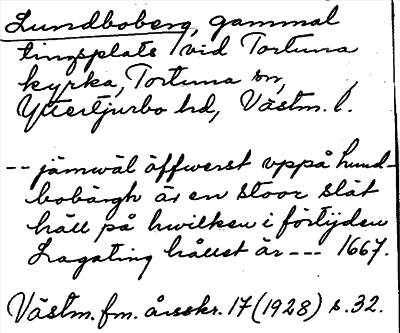 Lundboberg, gammal
tingsplats vid Tortuna
kyrka, Tortuna sn,
Yttertjurbo hd, Västm. l.
-- jämwäl äffwerst uppå hund-
bobärgh är en stoor slät
häll på hwilken i förtijden
Lagating hållet är --- 1667.
Västm. fm. årsskr. 17 (1928) s. 32.